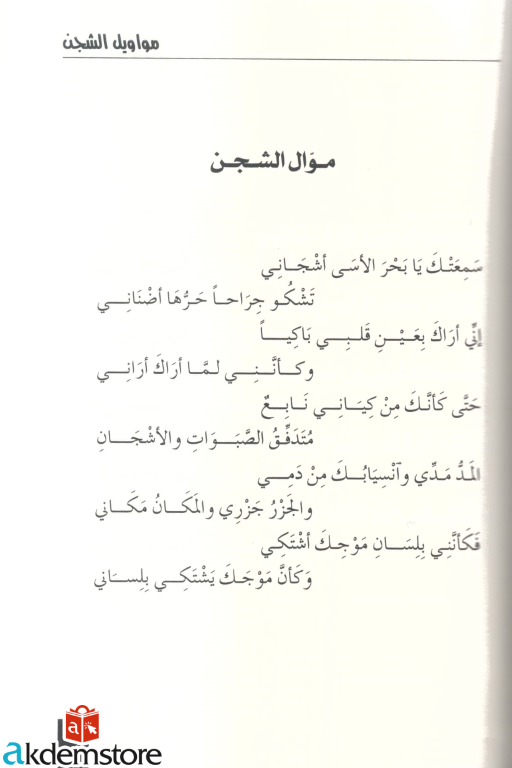 مواويل الشجن
مـوَال الشـجـن
سَمِعَتْـكَ يَا بَحْرَ الأسَى أشْجَـانِي
تَشْكُـو جِرَاحـاً حَرُّهَا أضْنَانِـي
إنِّي أرَاكَ بِعَيْـنِ قَلبِـي بَاكِيـاً
وكـأنَّـنِـي لـمَّـا أرَاكَ أرَانِـي
حَتَّى كَأنَّكَ مِنْ كِيَـانِـي نَـابِـعٌ
مُتَدَفِّـقُ الصَّبَـوَاتِ والأشْجَـانِ
المَدُّ مَدِّي وآنْسِيَابُـكَ مِنْ دَمِـي
والجَزْرُ جَزْرِي والمَكَـانُ مَكَـاني
فَكَأنَّنِي بِلِسَـانِ مَوْجِـكَ أشْتَكِي
وَكَأنَّ مَوْجَـكَ يَشْتَكِـي بِلِسـاني
akdemstore